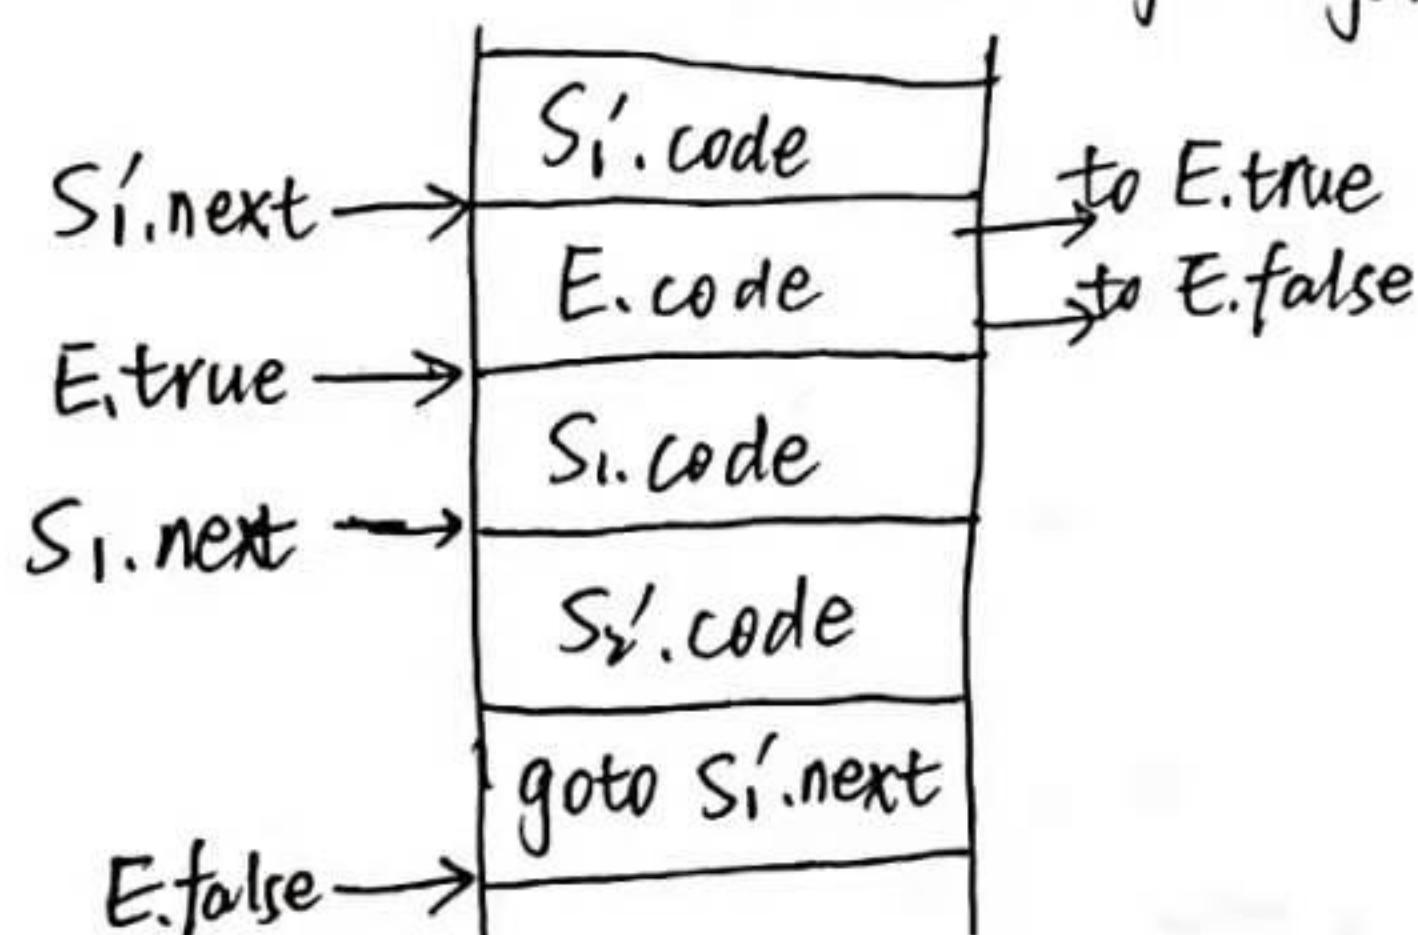 S₁'.code
S₁'.next
to E.true
E.code
to E.false
E.true
S₁.code
S₁.next
S₂'.code
goto S₁'.next
E.false